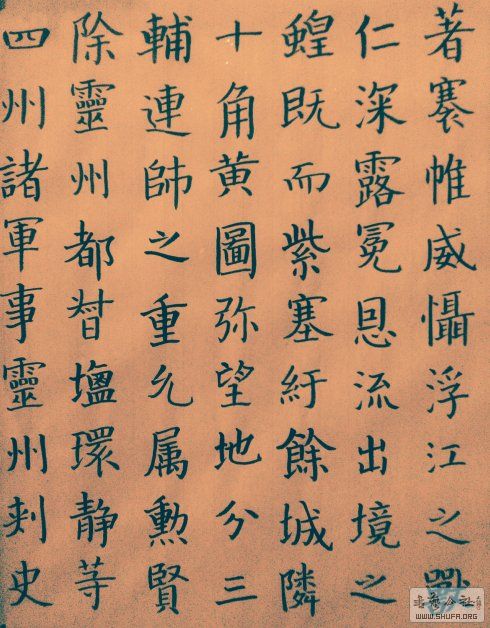 著褰帷威懾浮江之獸
仁深露冕恩流出境之
蝗既而紫塞紆餘城隣
十角黄圖弥望地分三
輔連帥之重允属勳賢
除靈州都督塩環静等
四州諸軍事靈州刺史
WWW.SHUFA.ORG